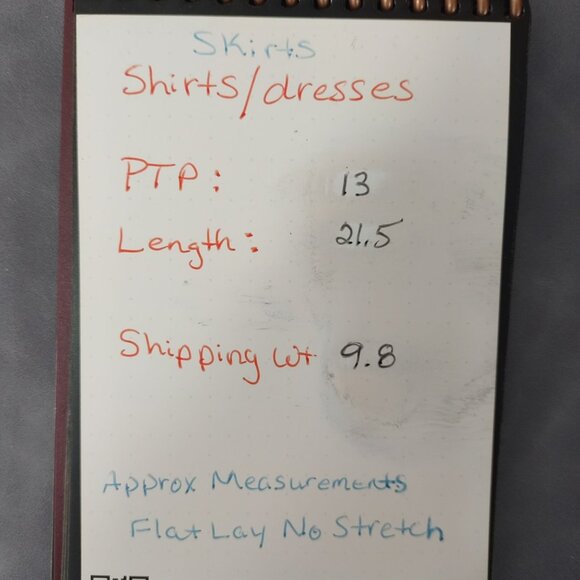 Skirts
Shirts/dresses
PTP: 13
Length: 21.5
Shipping Wt 9.8
Approx Measurements
Flat Lay No Stretch